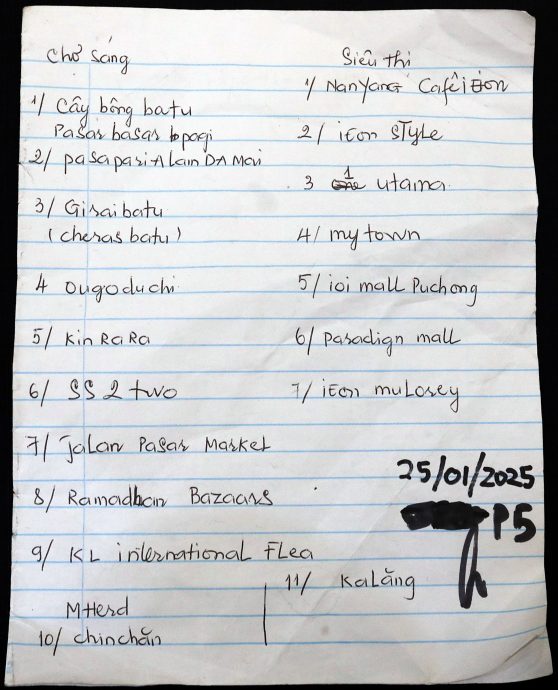 Chợ Sáng
1/ Cây bông batu
Pasar basas pagi
2/ pasapasi A Lain DA Mai
3/ Gisaibatu
(cheras batu)
4 Ougoduchi
5/ Kin RaRa
6/ SS 2 two
7/ Jalan Pasar Market
8/ Ramadhan Bazaars
9/ KL international Flea
MHerd
10/ Chinchăn
11/ Kalăng
Siêu thi
1/ NanYang Cafê iEon
2/ iEon STyle
3 1 utama
4/ my town
5/ ioi mall Puchong
6/ Pasadign mall
7/ iEon muLosey
25/01/2025
P5